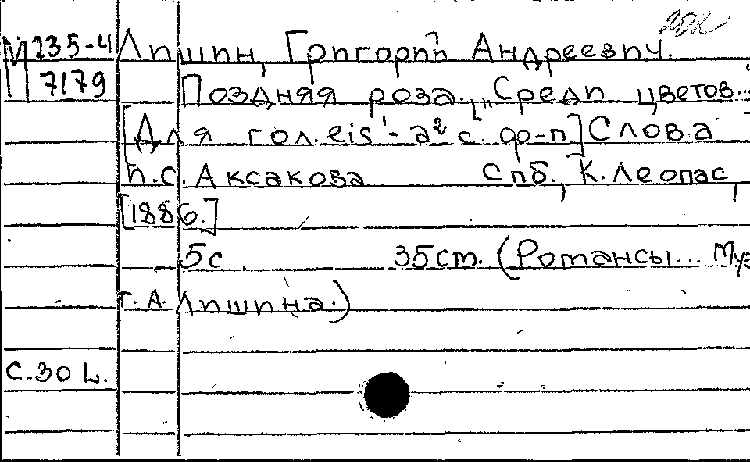 М 235-4 Липшин, Григорий Андреевич.
7179 Поздняя роза. "Среди цветов..
[Для гол. eis'-a² с ф-п] Слова
И.С. Аксакова Спб., К. Леопас,
[1886.]
5с 35 ст. (Романсы... Муз
Г. А. Лишина.)
С.30 L.